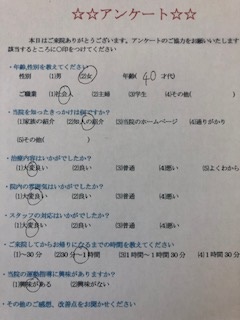 ☆☆アンケート☆☆
本日はご来院ありがとうございます。アンケートのご協力をお願いいたします
該当するところに○印をつけてください
・年齢,性別を教えてください
性別 (1)男 (2)女 年齢( 40 才代)
ご職業 (1)社会人 (2)主婦 (3)学生 (4)その他( )
・当院を知ったきっかけは何ですか？
(1)家族の紹介 (2)知人の紹介 (3)当院のホームページ (4)通りがかり
(5)その他( )
・治療内容はいかがでしたか？
(1)大変良い (2)良い (3)普通 (4)悪い (5)よくわから
・院内の雰囲気はいかがでしたか？
(1)大変良い (2)良い (3)普通 (4)悪い
・スタッフの対応はいかがでしたか？
(1)大変良い (2)良い (3)普通 (4)悪い
・ご来院してからお帰りになるまでの時間を教えてください
(1)～30分 (2)30分～1時間 (3)1時間～1時間30分 (4)1時間30分
・当院の運動指導に興味がありますか？
(1)興味がある (2)興味がない
・その他のご感想、改善点をお聞かせください